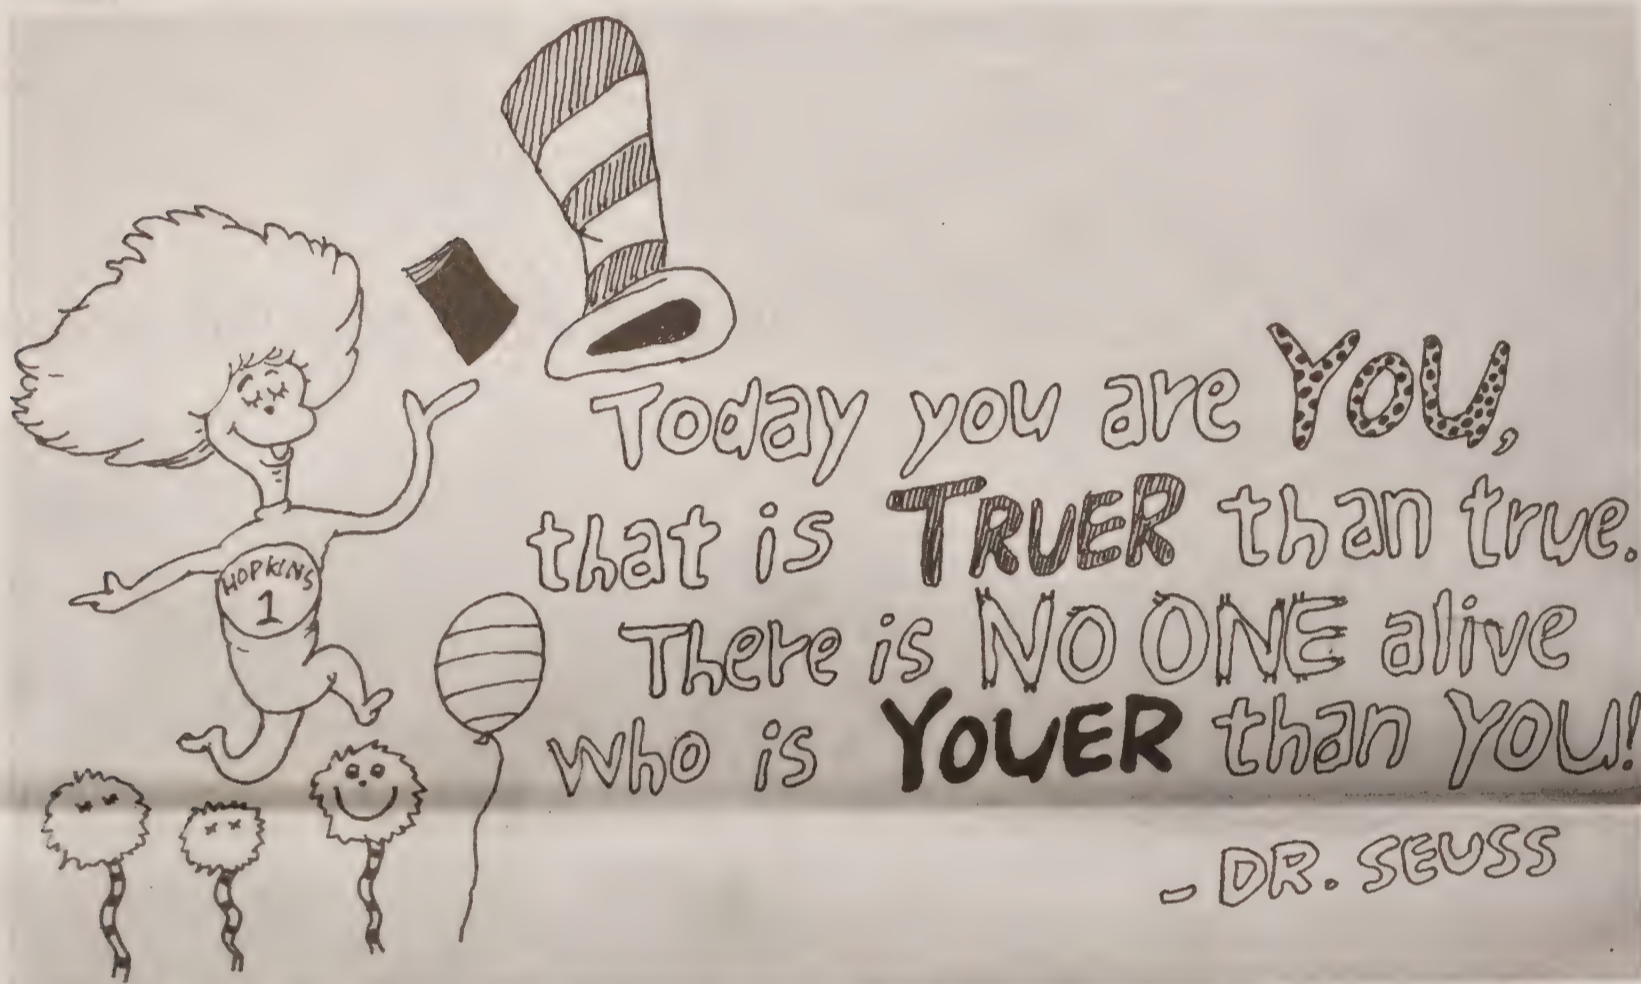 HOPKINS
1
Today you are YOU,
that is TRUER than true.
There is NO ONE alive
who is YOUER than YOU!
- DR. SEUSS